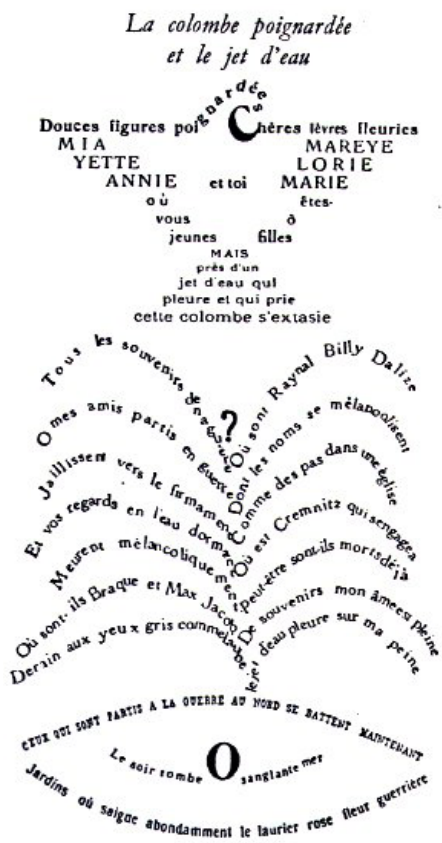 La colombe poignardée
et le jet d'eau
Douces figures poignardées Chères lèvres fleuries
MIA MAREYE
YETTE LORIE
ANNIE et toi MARIE
où êtes-
vous ô
jeunes filles
MAIS
près d'un
jet d'eau qui
pleure et qui prie
cette colombe s'extasie
Tous les souvenirs de naguère
O mes amis partis en guerre
Jaillissent vers le firmament
Et vos regards en l'eau dormant
Meurent mélancoliquement
Où sont-ils Braque et Max Jacob
Derain aux yeux gris comme l'aube
?
Où sont Raynal Billy Dalize
Dont les noms se mélancolisent
Comme des pas dans une église
Où est Cremnitz qui s'engagea
Peut-être sont-ils morts déjà
De souvenirs mon âme est pleine
le jet d'eau pleure sur ma peine
CEUX QUI SONT PARTIS A LA GUERRE AU NORD SE BATTENT MAINTENANT
Le soir tombe O sanglante mer
Jardins où saigne abondamment le laurier rose fleur guerrière